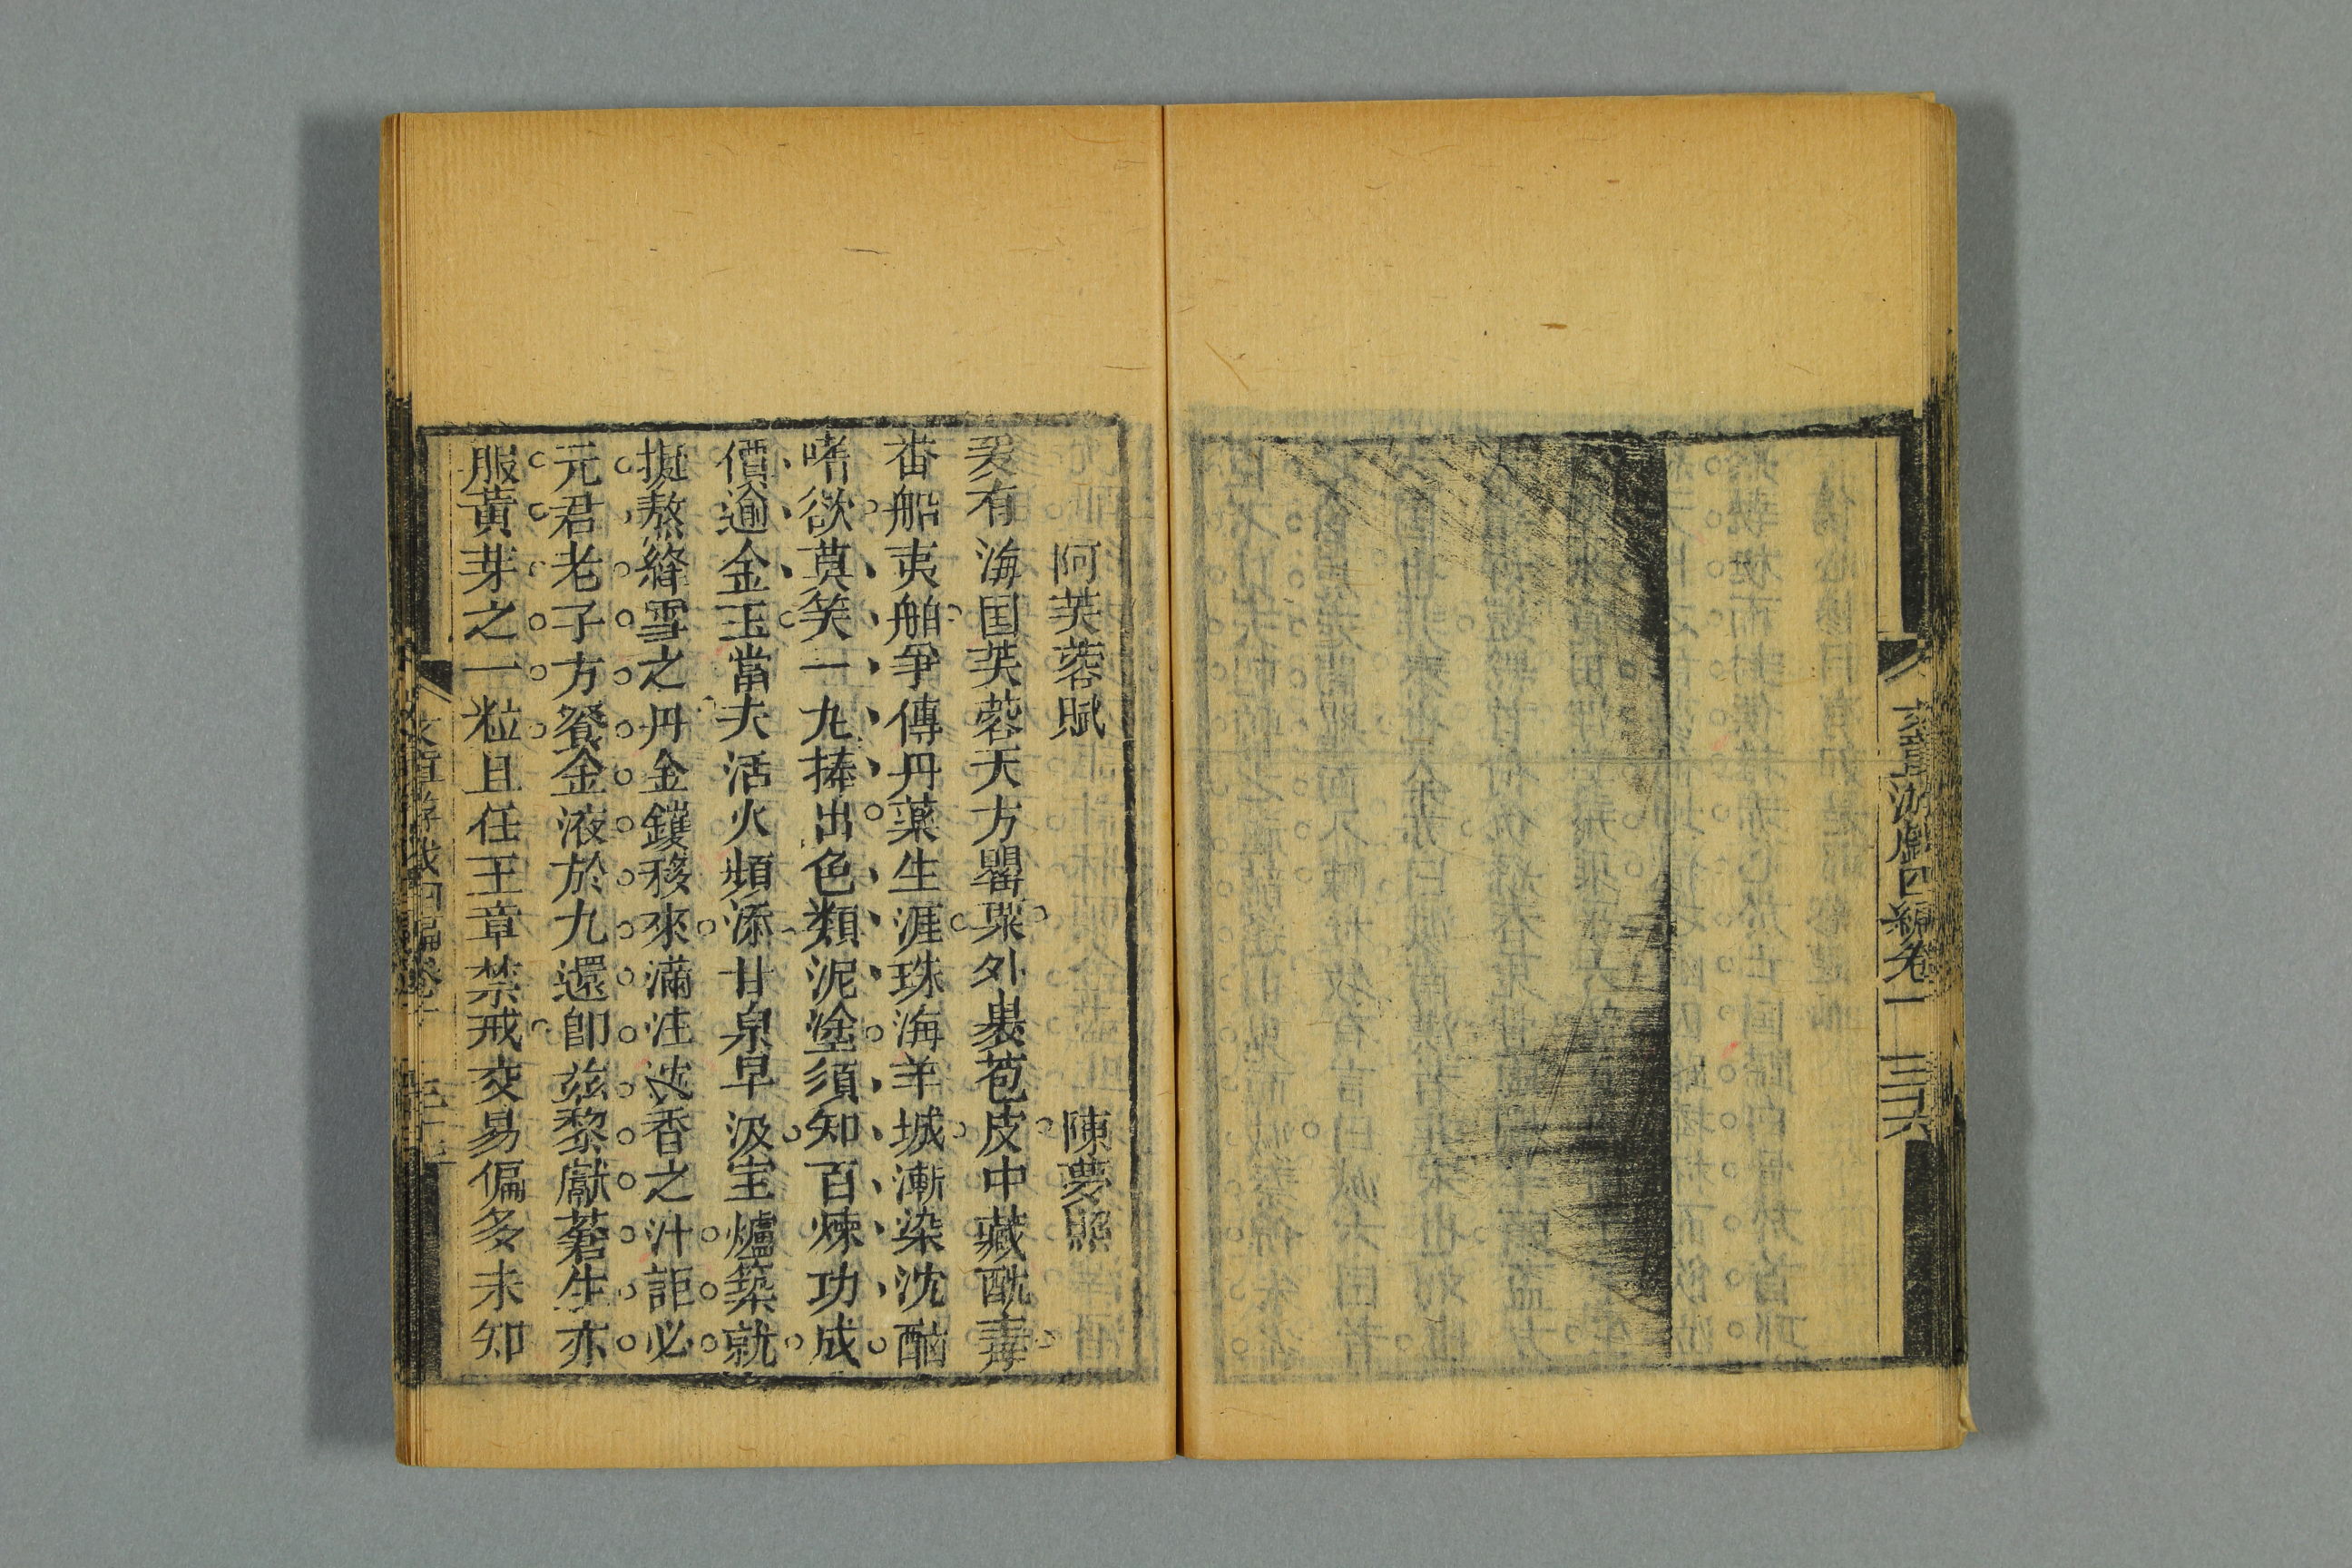 文章游戲四編卷一 三六
阿芙蓉賦 陳夢照
爰有海国芙蓉天方罌粟外裹苞皮中藏酖毒
番船夷舶爭傳丹藥生涯珠海羊城漸染沈酣
嗜欲莫笑一丸捧出色類泥塗須知百煉功成
價逾金玉當夫活火頻添甘泉早汲宝爐築就
挻熬絳雪之丹金鑊移來滿注波香之汁詎必
元君老子方餐金液於九還卽茲黎獻蒼生亦
服黃芽之一粒且任王章禁戒交易偏多未知
文章游戲四編卷一